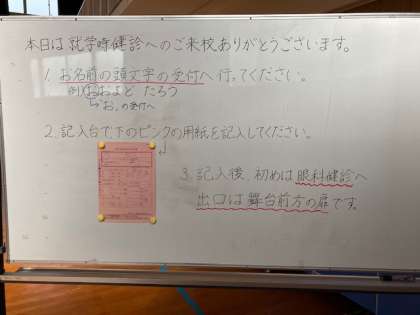 本日は就学時健診へのご来校ありがとうございます。
1. お名前の頭文字の受付へ行ってください。
例) おおよど たろう
"お"の受付へ
2. 記入台で下のピンクの用紙を記入してください。
3. 記入後、初めは眼科健診へ
出口は舞台前方の扉です。